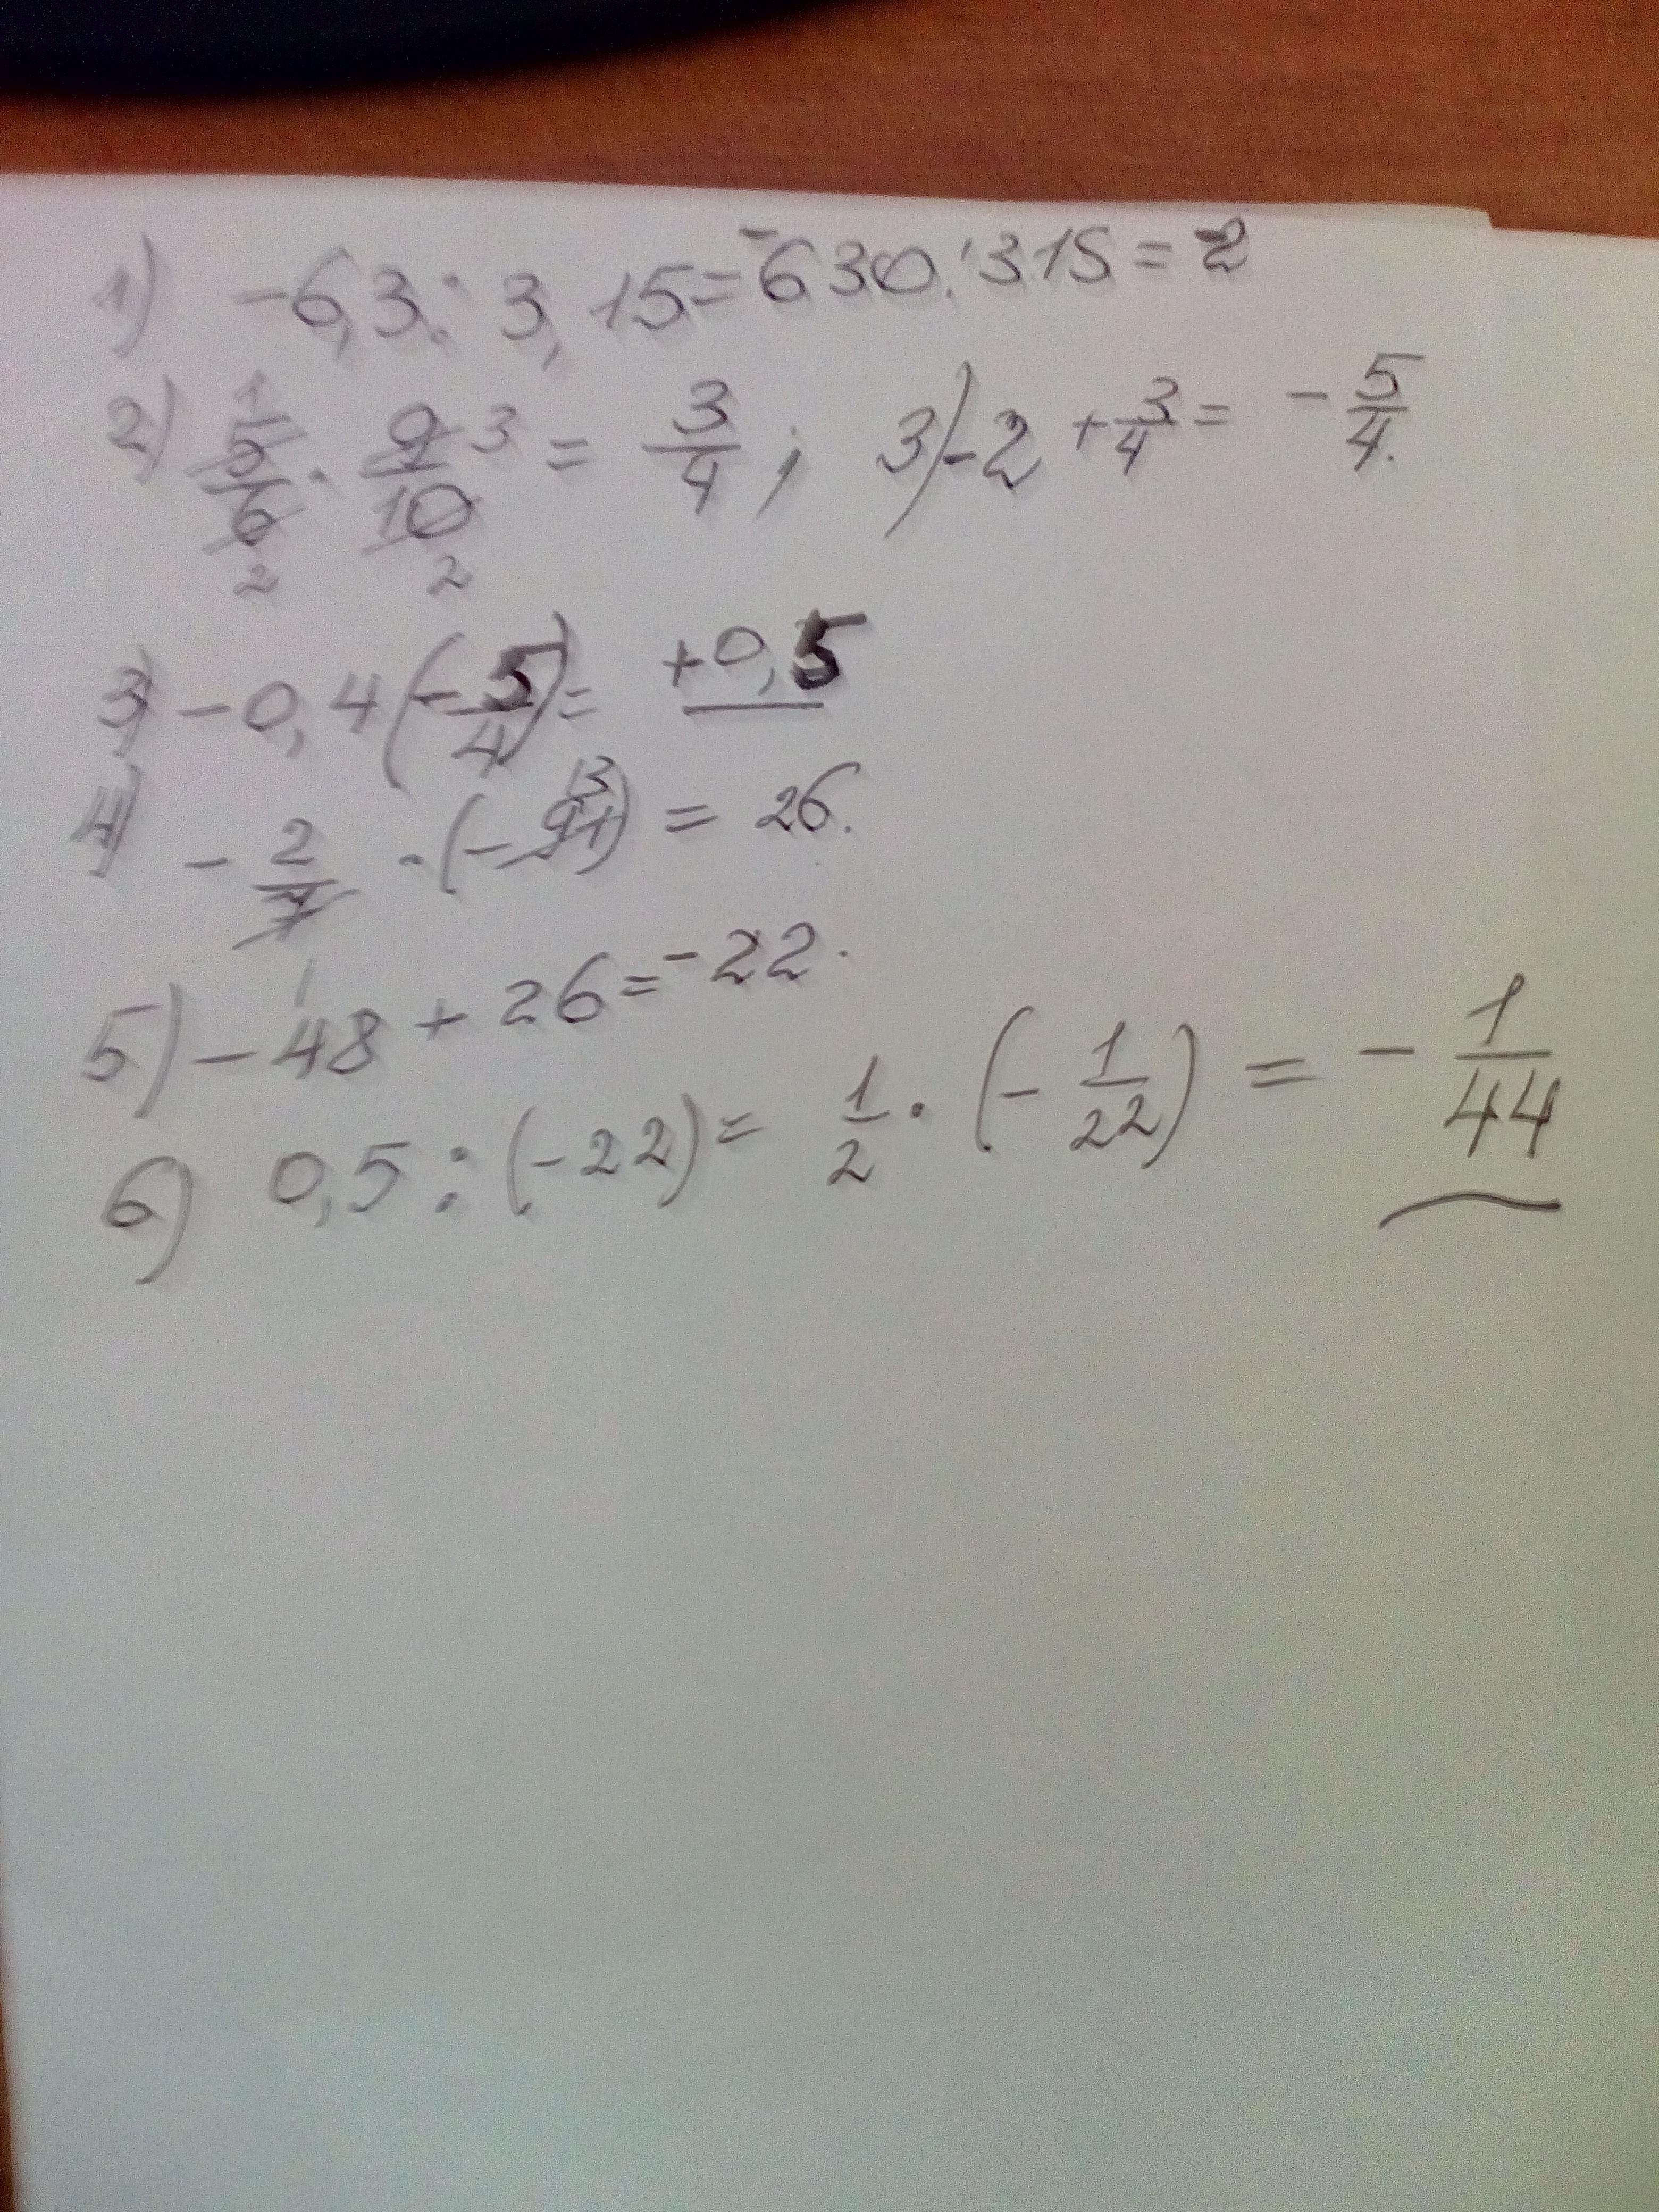 1) -6,3 : 3,15 = -630 : 315 = -2
2) 5/6 · 9/10 = 3/4 ; 3) -2 + 3/4 = - 5/4.
3) -0,4 (- 5/4) = +0,5
4) - 2/7 · (-91) = 26.
5) -48 + 26 = -22.
6) 0,5 : (-22) = 1/2 · (- 1/22) = - 1/44